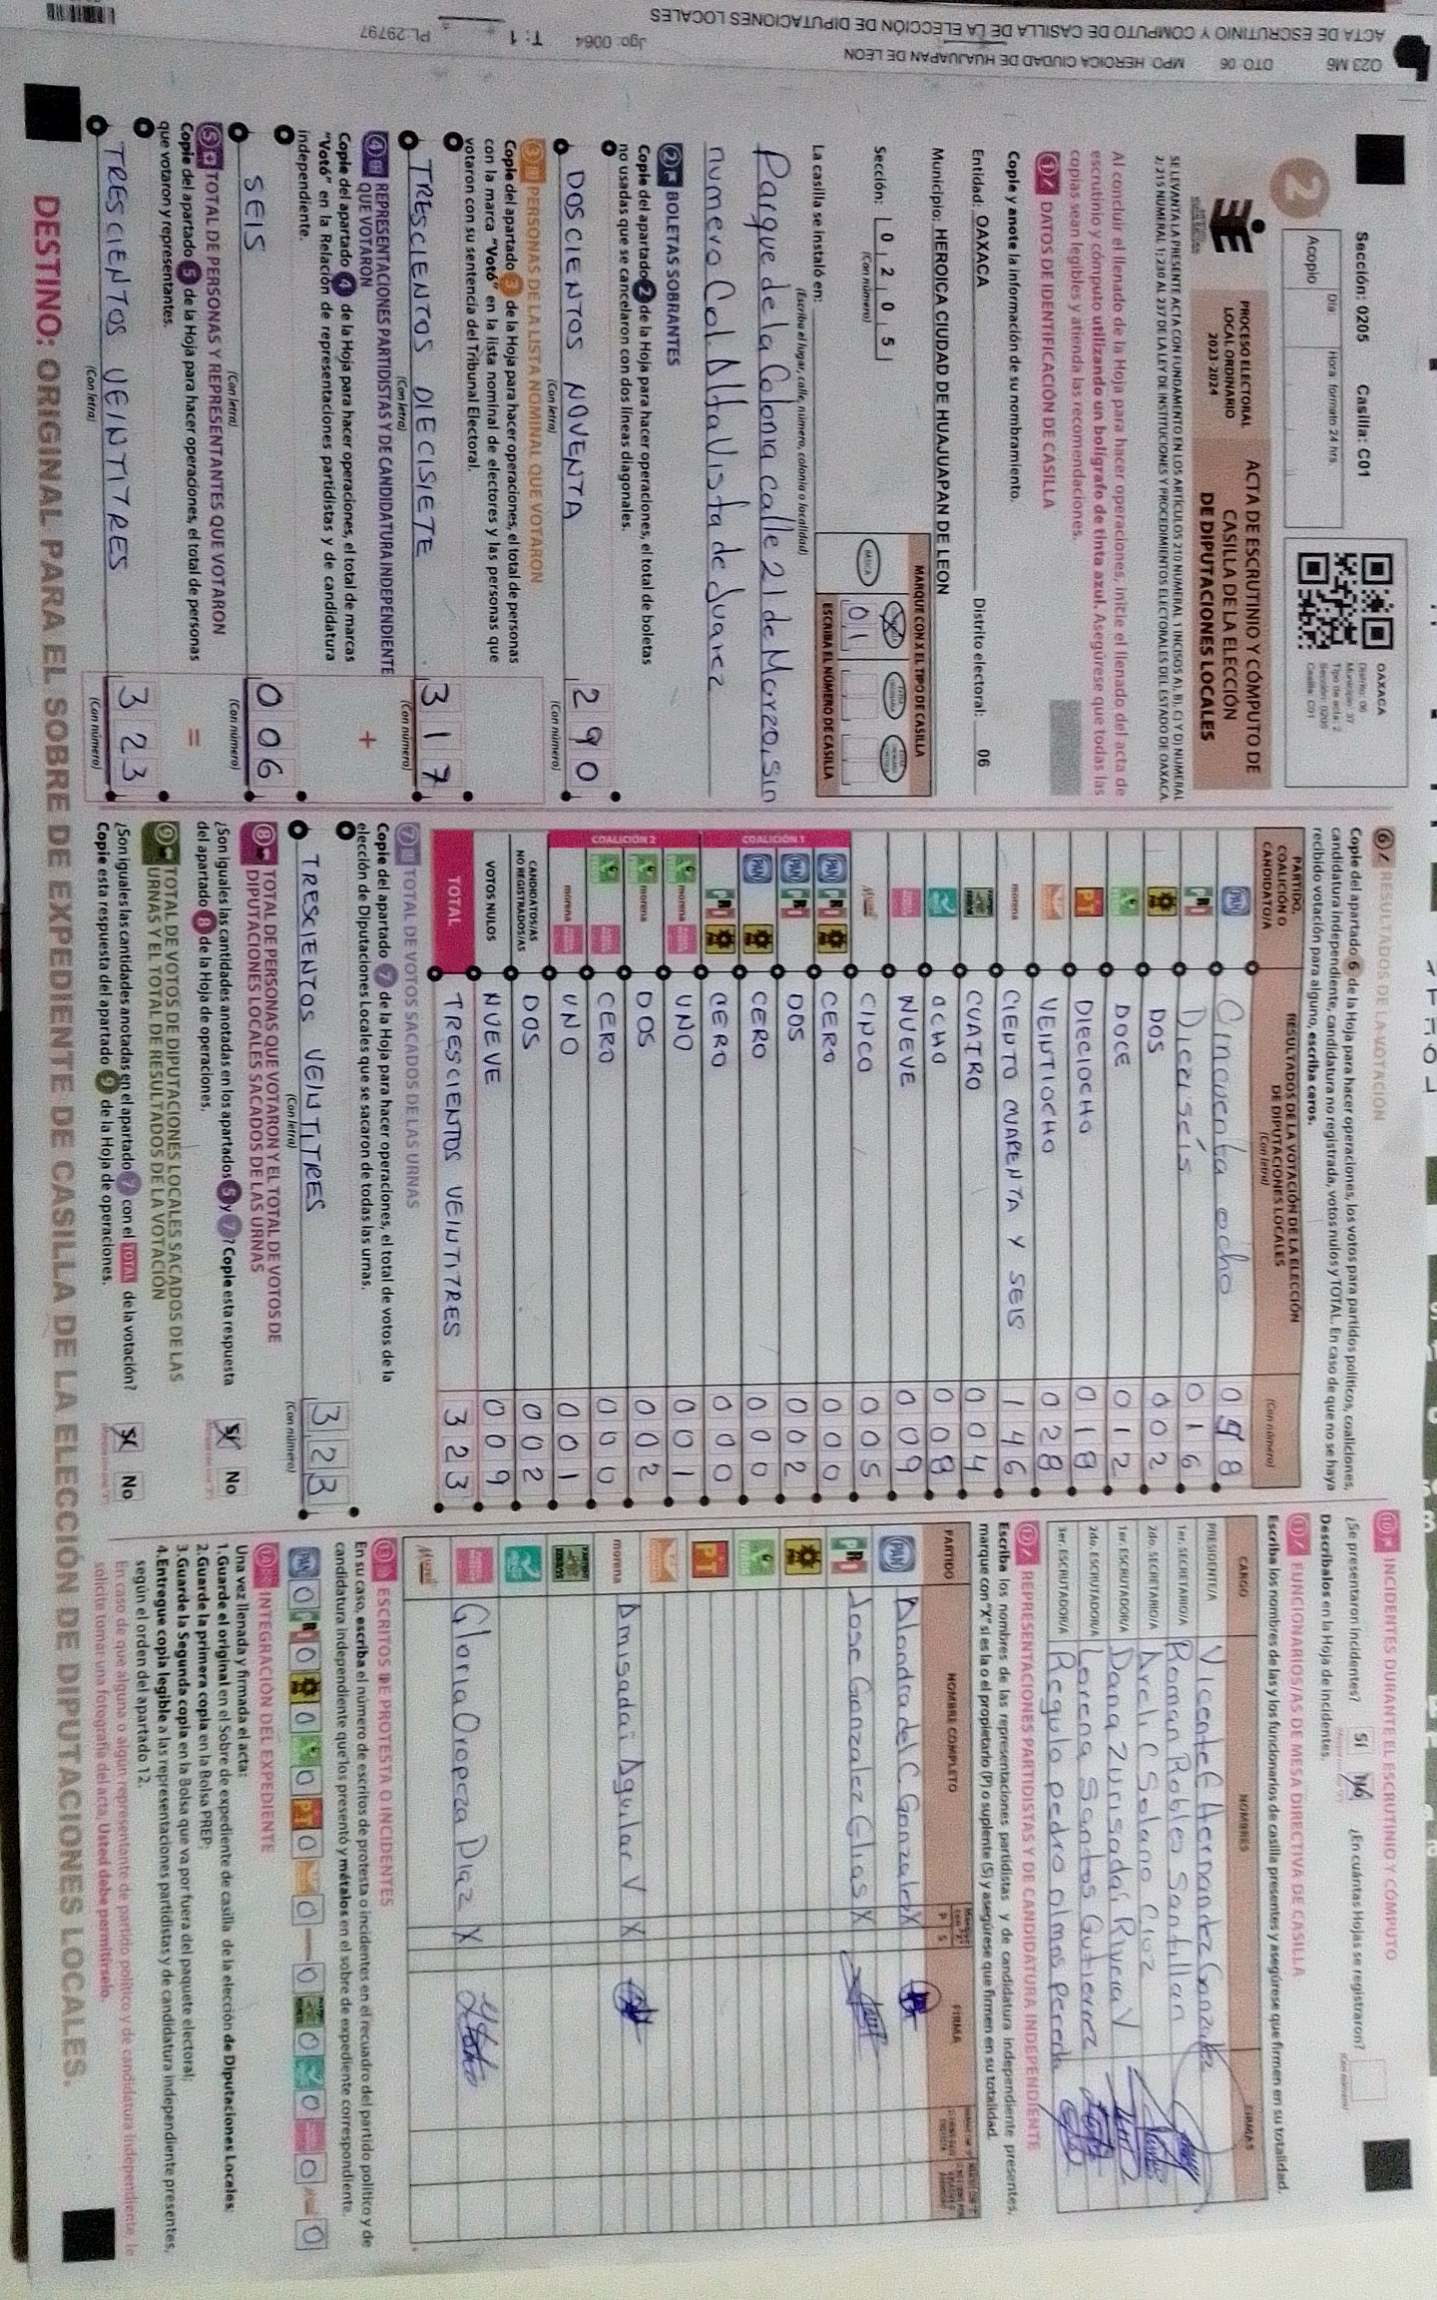 Sección: 0205 Casilla: C01
2
Acopio
Día
Hora: formato 24 hrs
OAXACA
Distrito: 06
Municipio: 37
Tipo de acta: 2
Sección: 0205
Casilla: C01
PROCESO ELECTORAL
LOCAL ORDINARIO
2023-2024
ACTA DE ESCRUTINIO Y CÓMPUTO DE
CASILLA DE LA ELECCIÓN
DE DIPUTACIONES LOCALES
SE LEVANTA LA PRESENTE ACTA CON FUNDAMENTO EN LOS ARTÍCULOS 210 NUMERAL 1 INCISOS A), B), C) Y D) NUMERAL
2; 215 NUMERAL 1; 230 AL 237 DE LA LEY DE INSTITUCIONES Y PROCEDIMIENTOS ELECTORALES DEL ESTADO DE OAXACA.
Al concluir el llenado de la Hoja para hacer operaciones, inicie el llenado del acta de
escrutinio y cómputo utilizando un bolígrafo de tinta azul. Asegúrese que todas las
copias sean legibles y atienda las recomendaciones.
1 DATOS DE IDENTIFICACIÓN DE CASILLA
Copie y anote la información de su nombramiento.
Entidad: OAXACA Distrito electoral: 06
Municipio: HEROICA CIUDAD DE HUAJUAPAN DE LEON
Sección: 0 2 0 5
(Con número)
MARQUE CON X EL TIPO DE CASILLA
BÁSICA
0 1
ESCRIBA EL NÚMERO DE CASILLA
La casilla se instaló en:
(Escriba el lugar, calle, número, colonia o localidad)
Parque de la Colonia calle 21 de Marzo, sin
numero Col. Alta Vista de Juarez
2 BOLETAS SOBRANTES
Copie del apartado 2 de la Hoja para hacer operaciones, el total de boletas
no usadas que se cancelaron con dos líneas diagonales.
DOSCIENTOS NOVENTA 290
(Con letra) (Con número)
3 PERSONAS DE LA LISTA NOMINAL QUE VOTARON
Copie del apartado 3 de la Hoja para hacer operaciones, el total de personas
con la marca "Votó" en la lista nominal de electores y las personas que
votaron con su sentencia del Tribunal Electoral.
TRESCIENTOS DIECISIETE 317
(Con letra) (Con número)
4 REPRESENTACIONES PARTIDISTAS Y DE CANDIDATURA INDEPENDIENTE
QUE VOTARON
+
Copie del apartado 4 de la Hoja para hacer operaciones, el total de marcas
"Votó" en la Relación de representaciones partidistas y de candidatura
independiente.
SEIS 006
(Con letra) (Con número)
5 TOTAL DE PERSONAS Y REPRESENTANTES QUE VOTARON
=
Copie del apartado 5 de la Hoja para hacer operaciones, el total de personas
que votaron y representantes.
TRESCIENTOS VEINTITRES 323
(Con letra) (Con número)
6 RESULTADOS DE LA VOTACIÓN
Copie del apartado 6 de la Hoja para hacer operaciones, los votos para partidos políticos, coaliciones,
candidatura independiente, candidatura no registrada, votos nulos y TOTAL. En caso de que no se haya
recibido votación para alguno, escriba ceros.
PARTIDO,
COALICIÓN O
CANDIDATO/A
RESULTADOS DE LA VOTACIÓN DE LA ELECCIÓN
DE DIPUTACIONES LOCALES
(Con letra)
(Con número)
PAN Cincuenta ocho 058
PRI Dieziseis 016
DOS 002
DOCE 012
PT DIECIOCHO 018
VEINTIOCHO 028
morena CIENTO CUARENTA Y SEIS 146
CUATRO 004
OCHO 008
NUEVE 009
CINCO 005
COALICIÓN 1
PAN PRI CERO 000
PAN PRI DOS 002
PAN CERO 000
PRI CERO 000
COALICIÓN 2
morena UNO 001
morena DOS 002
CERO 000
morena UNO 001
CANDIDATOS/AS
NO REGISTRADOS/AS DOS 002
VOTOS NULOS NUEVE 009
TOTAL TRESCIENTOS VEINTITRES 323
7 TOTAL DE VOTOS SACADOS DE LAS URNAS
Copie del apartado 7 de la Hoja para hacer operaciones, el total de votos de la
elección de Diputaciones Locales que se sacaron de todas las urnas.
TRESCIENTOS VEINTITRES 323
(Con letra) (Con número)
8 TOTAL DE PERSONAS QUE VOTARON Y EL TOTAL DE VOTOS DE
DIPUTACIONES LOCALES SACADOS DE LAS URNAS
¿Son iguales las cantidades anotadas en los apartados 5 y 7? Copie esta respuesta
del apartado 8 de la Hoja de operaciones.
SÍ No
9 TOTAL DE VOTOS DE DIPUTACIONES LOCALES SACADOS DE LAS
URNAS Y EL TOTAL DE RESULTADOS DE LA VOTACIÓN
¿Son iguales las cantidades anotadas en el apartado 7 con el TOTAL de la votación?
Copie esta respuesta del apartado 9 de la Hoja de operaciones.
SÍ No
10 INCIDENTES DURANTE EL ESCRUTINIO Y CÓMPUTO
¿Se presentaron incidentes? Sí No ¿En cuántas Hojas se registraron?
Descríbalos en la Hoja de incidentes.
11 FUNCIONARIOS/AS DE MESA DIRECTIVA DE CASILLA
Escriba los nombres de las y los funcionarios de casilla presentes y asegúrese que firmen en su totalidad.
CARGO NOMBRES FIRMAS
PRESIDENTE/A Vicente E Hernandez Gonzalez
1er. SECRETARIO/A Roman Robles Santillan
2do. SECRETARIO/A Areli C Solano Cruz
1er. ESCRUTADOR/A Dana Zurisadaí Rivera V
2do. ESCRUTADOR/A Lorena Santos Gutierrez
3er. ESCRUTADOR/A Regulo pedro olmos Pereda
12 REPRESENTACIONES PARTIDISTAS Y DE CANDIDATURA INDEPENDIENTE
Escriba los nombres de las representaciones partidistas y de candidatura independiente presentes,
marque con "X" si es la o el propietario (P) o suplente (S) y asegúrese que firmen en su totalidad.
PARTIDO NOMBRE COMPLETO P S FIRMA
PAN Alondra del C Gonzalez X
PRI Jose Gonzalez Elias X
PT
morena Amisadai Aguilar V X
Gloria Oropeza Diaz X
13 ESCRITOS DE PROTESTA O INCIDENTES
En su caso, escriba el número de escritos de protesta o incidentes en el recuadro del partido político y de
candidatura independiente que los presentó y métalos en el sobre de expediente de casilla correspondiente.
PAN 0 PRI 0 0 0 PT 0 0 0 0 0 0 0
14 INTEGRACIÓN DEL EXPEDIENTE
Una vez llenada y firmada el acta:
1. Guarde el original en el Sobre de expediente de casilla de la elección de Diputaciones Locales;
2. Guarde la primera copia en la Bolsa PREP;
3. Guarde la Segunda copia en la Bolsa que va por fuera del paquete electoral;
4. Entregue copia legible a las representaciones partidistas y de candidatura independiente presentes,
según el orden del apartado 12.
En caso de que alguna o algún representante de partido político y de candidatura independiente, le
solicite tomar una fotografía del acta, Usted debe permitírselo.
DESTINO: ORIGINAL: PARA EL SOBRE DE EXPEDIENTE DE CASILLA DE LA ELECCIÓN DE DIPUTACIONES LOCALES.
O23 M6 DTO: 06 MPO: HEROICA CIUDAD DE HUAJUAPAN DE LEON
ACTA DE ESCRUTINIO Y CÓMPUTO DE CASILLA DE LA ELECCIÓN DE DIPUTACIONES LOCALES
Jgo: 0064 T: 1 PL:29797